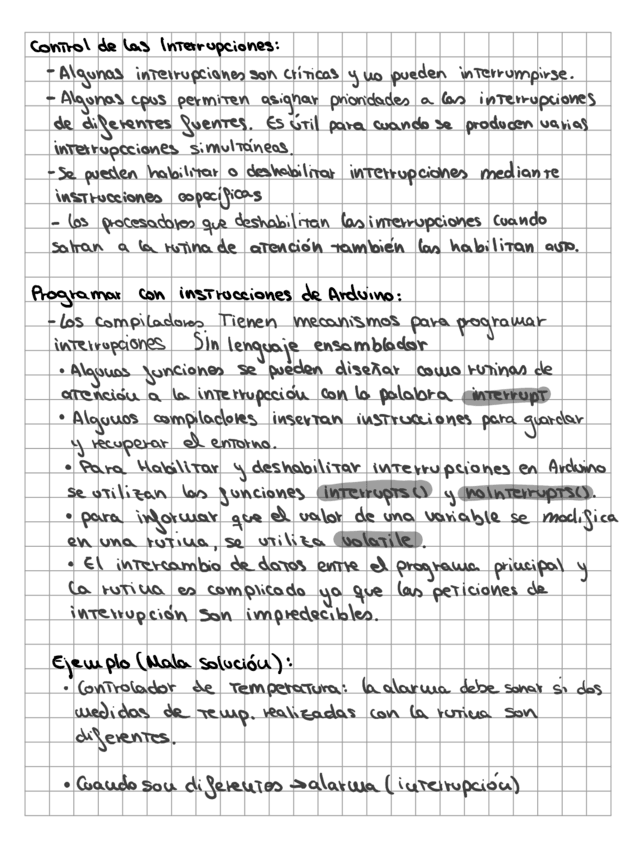 Control de las Interrupciones:
- Algunas interrupciones son críticas y no pueden interrumpirse.
- Algunas cpus permiten asignar prioridades a las interrupciones
de diferentes fuentes. Es útil para cuando se producen varias
interrupcciones simultáneas.
- Se pueden habilitar o deshabilitar interrupciones mediante
instrucciones específicas
- Los procesadores que deshabilitan las interrupciones cuando
saltan a la rutina de atención también las habilitan auto.
Programar con instrucciones de Arduino:
- Los compiladores Tienen mecanismos para programar
interrupciones Sin lenguaje ensamblador
• Algunas funciones se pueden diseñar como rutinas de
atención a la interrupcción con la palabra interrupt
• Algunos compiladores insertan instrucciones para guardar
y recuperar el entorno.
• Para Habilitar y deshabilitar interrupciones en Arduino
se utilizan las funciones interrupts() y noInterrupts().
• para informar que el valor de una variable se modifica
en una rutina, se utiliza volatile.
• El intercambio de datos entre el programa principal y
la rutina es complicado ya que las peticiones de
interrupción son impredecibles.
Ejemplo (Mala solución):
• Controlador de Temperatura: la alarma debe sonar si dos
medidas de temp. realizadas con la rutina son
diferentes.
• Cuando son diferentes → alarma (interrupción)